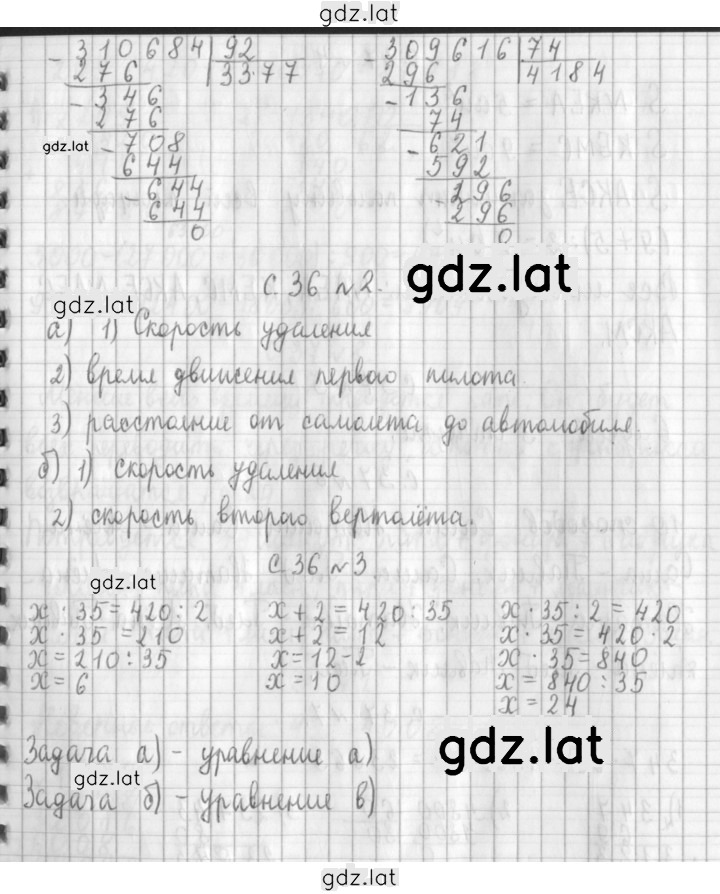 gdz.lat
- 310684 | 92
276 | 3377
- 346
276
gdz.lat
- 708
644
- 644
644
0
- 309616 | 74
296 | 4184
- 136
74
- 621
592
- 296
296
0
С. 36 №2.
gdz.lat
gdz.lat
а) 1) Скорость удаления
2) время движения первого пилота.
3) расстояние от самолета до автомобиля.
б) 1) скорость удаления
2) скорость второго вертолёта.
С. 36 №3
gdz.lat
x · 35 = 420 : 2
x · 35 = 210
x = 210 : 35
x = 6
x + 2 = 420 : 35
x + 2 = 12
x = 12 - 2
x = 10
x · 35 : 2 = 420
x · 35 = 420 · 2
x · 35 = 840
x = 840 : 35
x = 24
Задача а) - уравнение а)
gdz.lat
gdz.lat
Задача б) - уравнение в)
gdz.lat